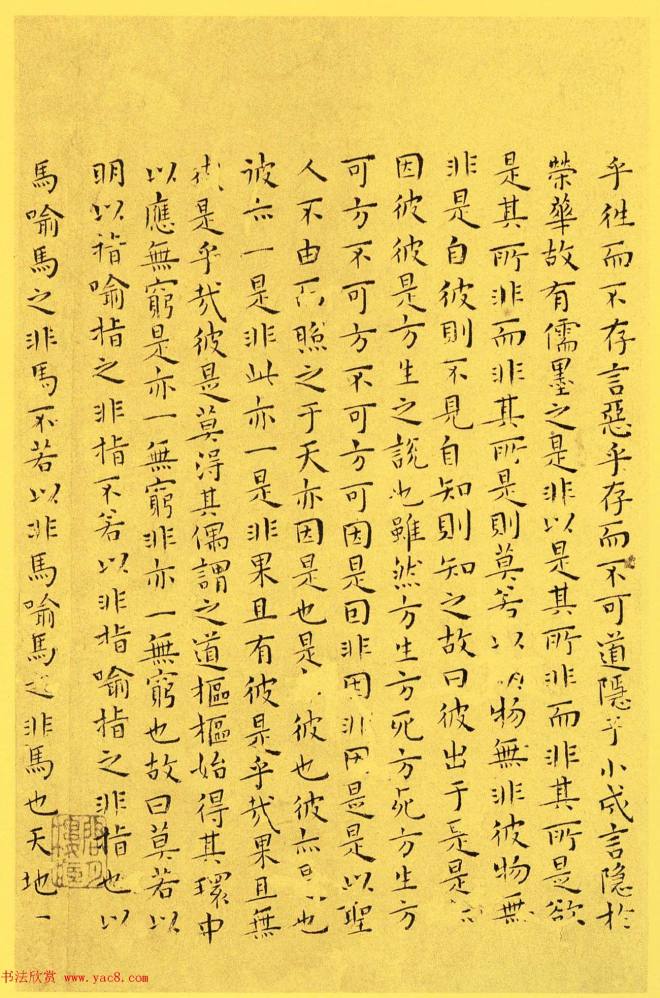 乎徃而不存言惡乎存而不可道隱乎小成言隐於
榮華故有儒墨之是非以是其所非而非其所是欲
是其所非而非其所是則莫若以明物無非彼物無
非是自彼則不見自知則知之故曰彼出于是是
因彼彼是方生之說也雖然方生方死方死方生方
可方不可方不可方可因是因非因非因是是以聖
人不由而照之于天亦因是也是彼也彼亦是也
彼亦一是非此亦一是非果且有彼是乎哉果且無
彼是乎哉彼是莫得其偶謂之道樞樞始得其環中
以應無窮是亦一無窮非亦一無窮也故曰莫若以
明以指喻指之非指不若以非指喻指之非指也以
馬喻馬之非馬不若以非馬喻馬之非馬也天地一
书法欣赏 www.yac8.com